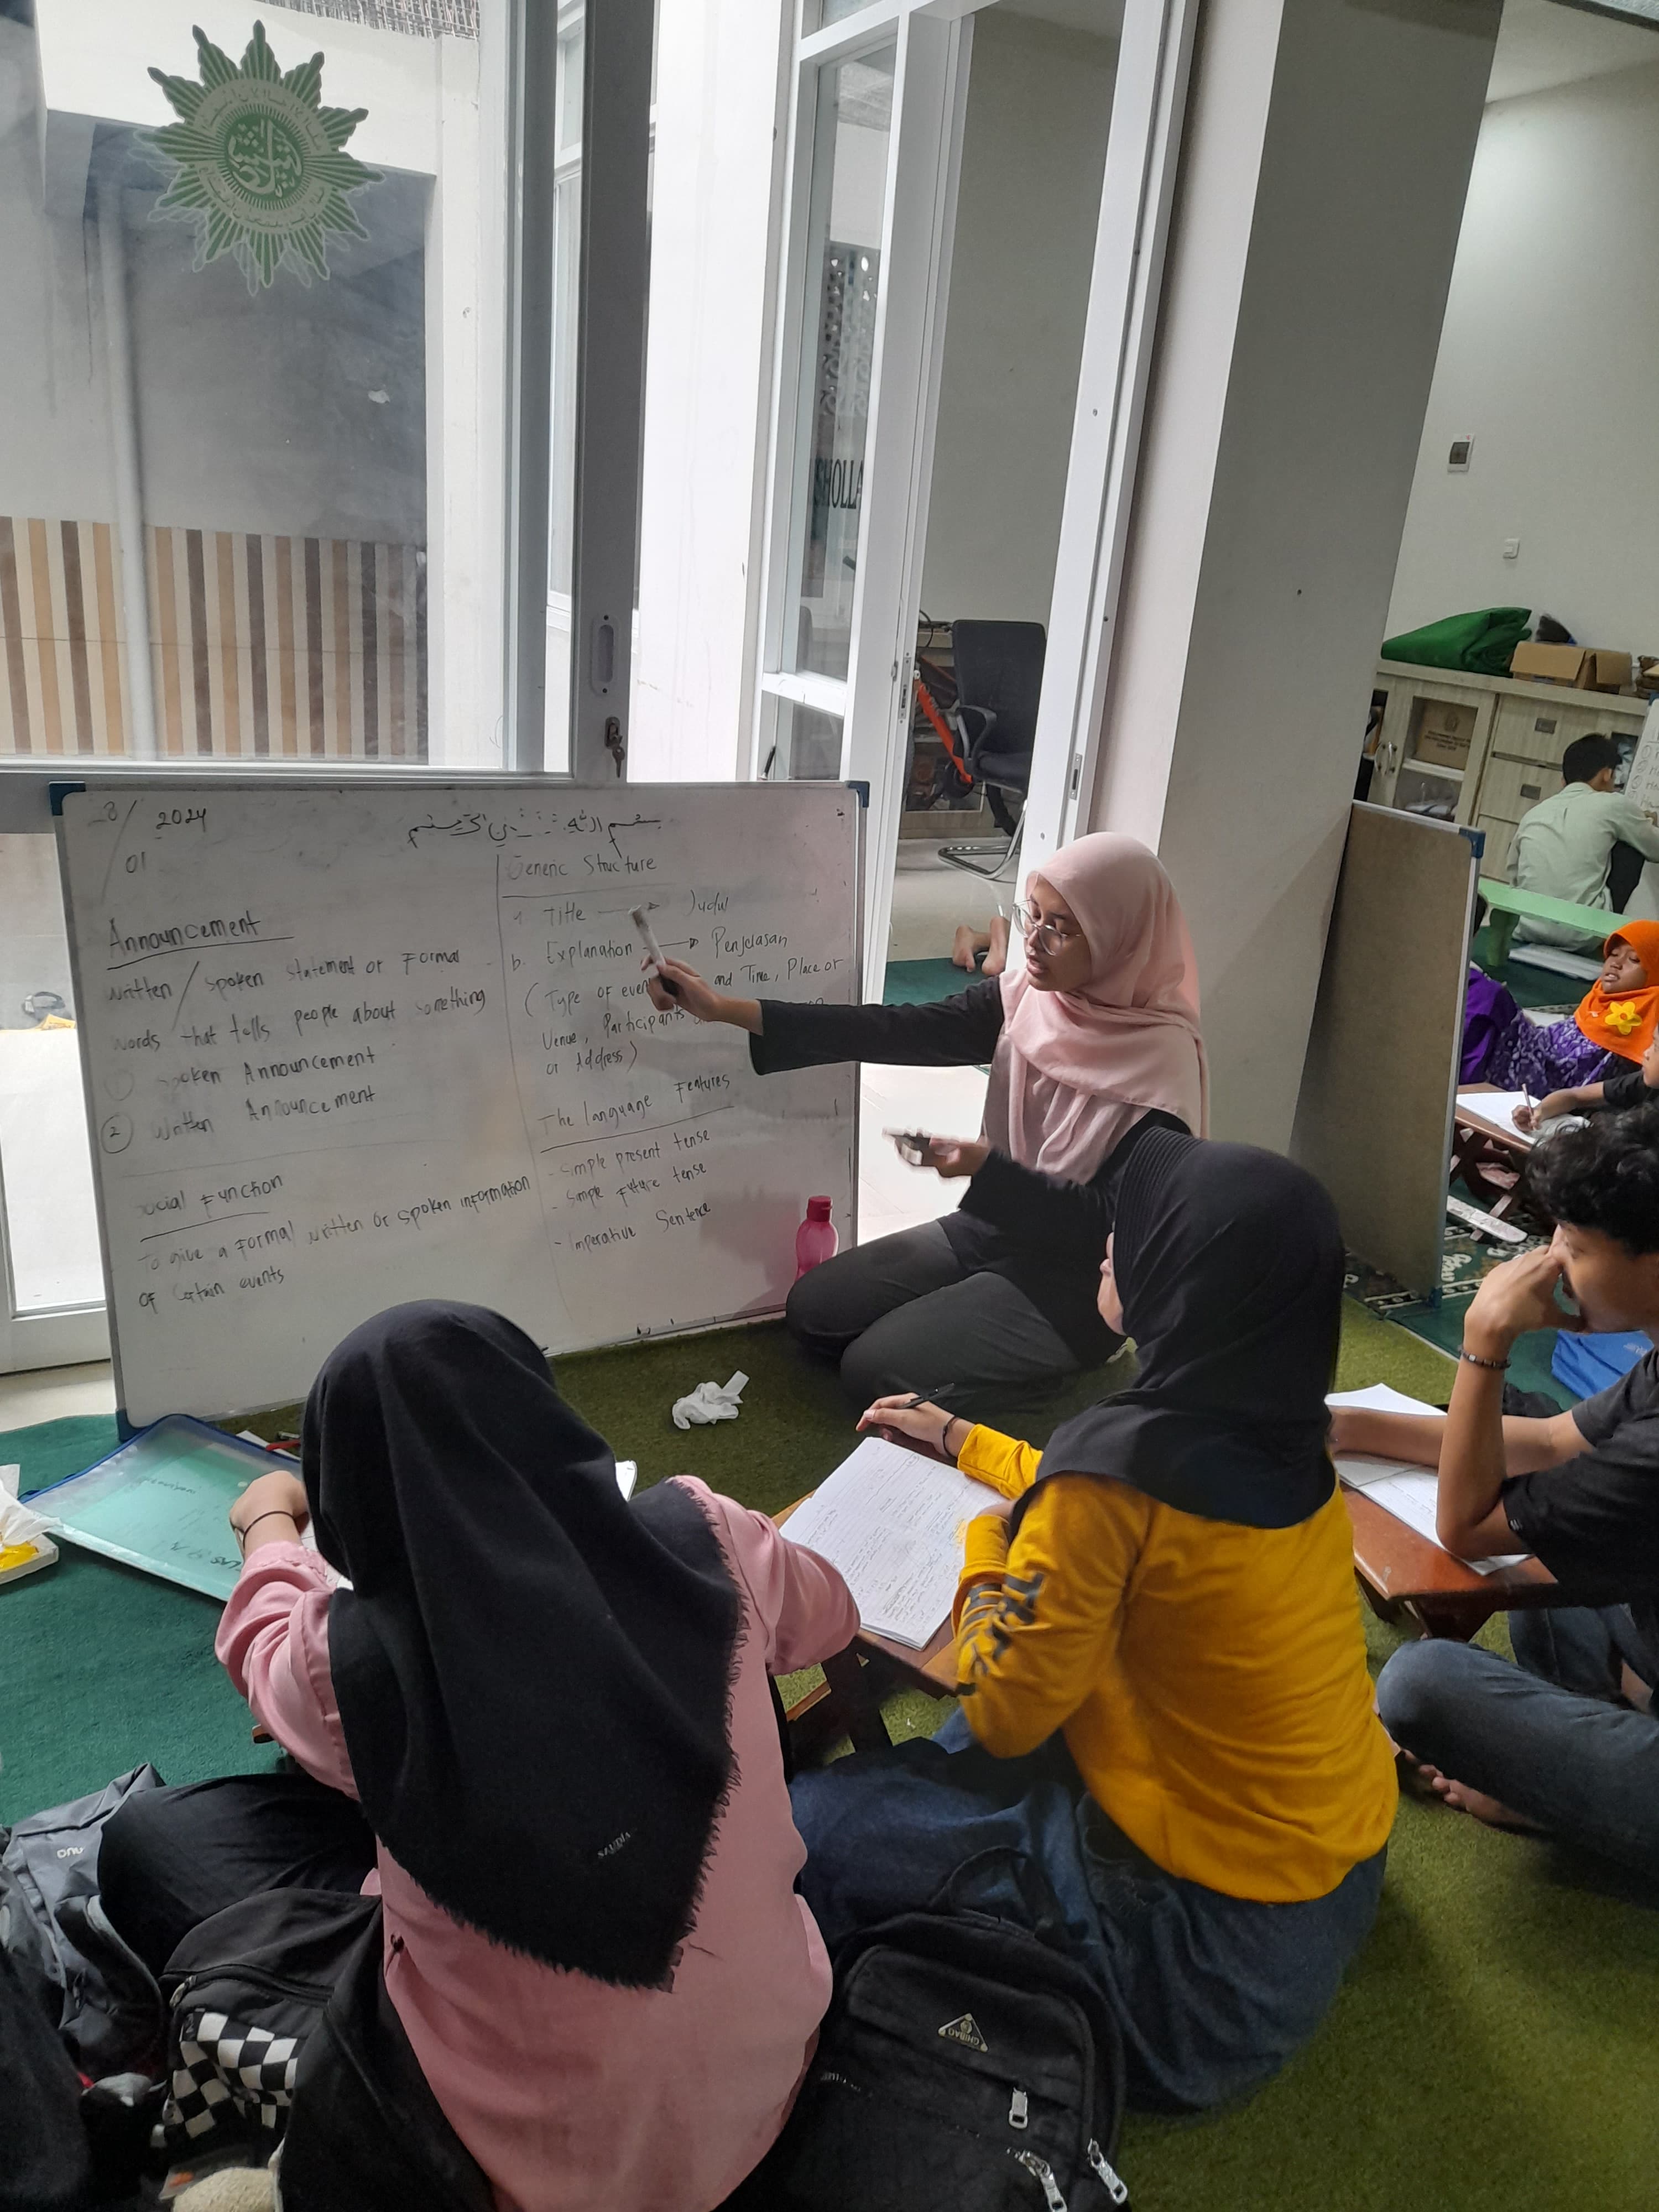 2024
01
بسم الله
Announcement
written / spoken statement or formal
words that tells people about something
spoken Announcement
2 written Announcement
Social Function
To give a formal written or spoken information
of certain events
Generic Structure
Title → Judul
b. Explanation → Penjelasan
(Type of event and Time, Place or
Venue, Participants
or Address)
The language Features
- Simple present tense
- Simple Future tense
- Imperative Sentence
SHOLLA
SAUDIA